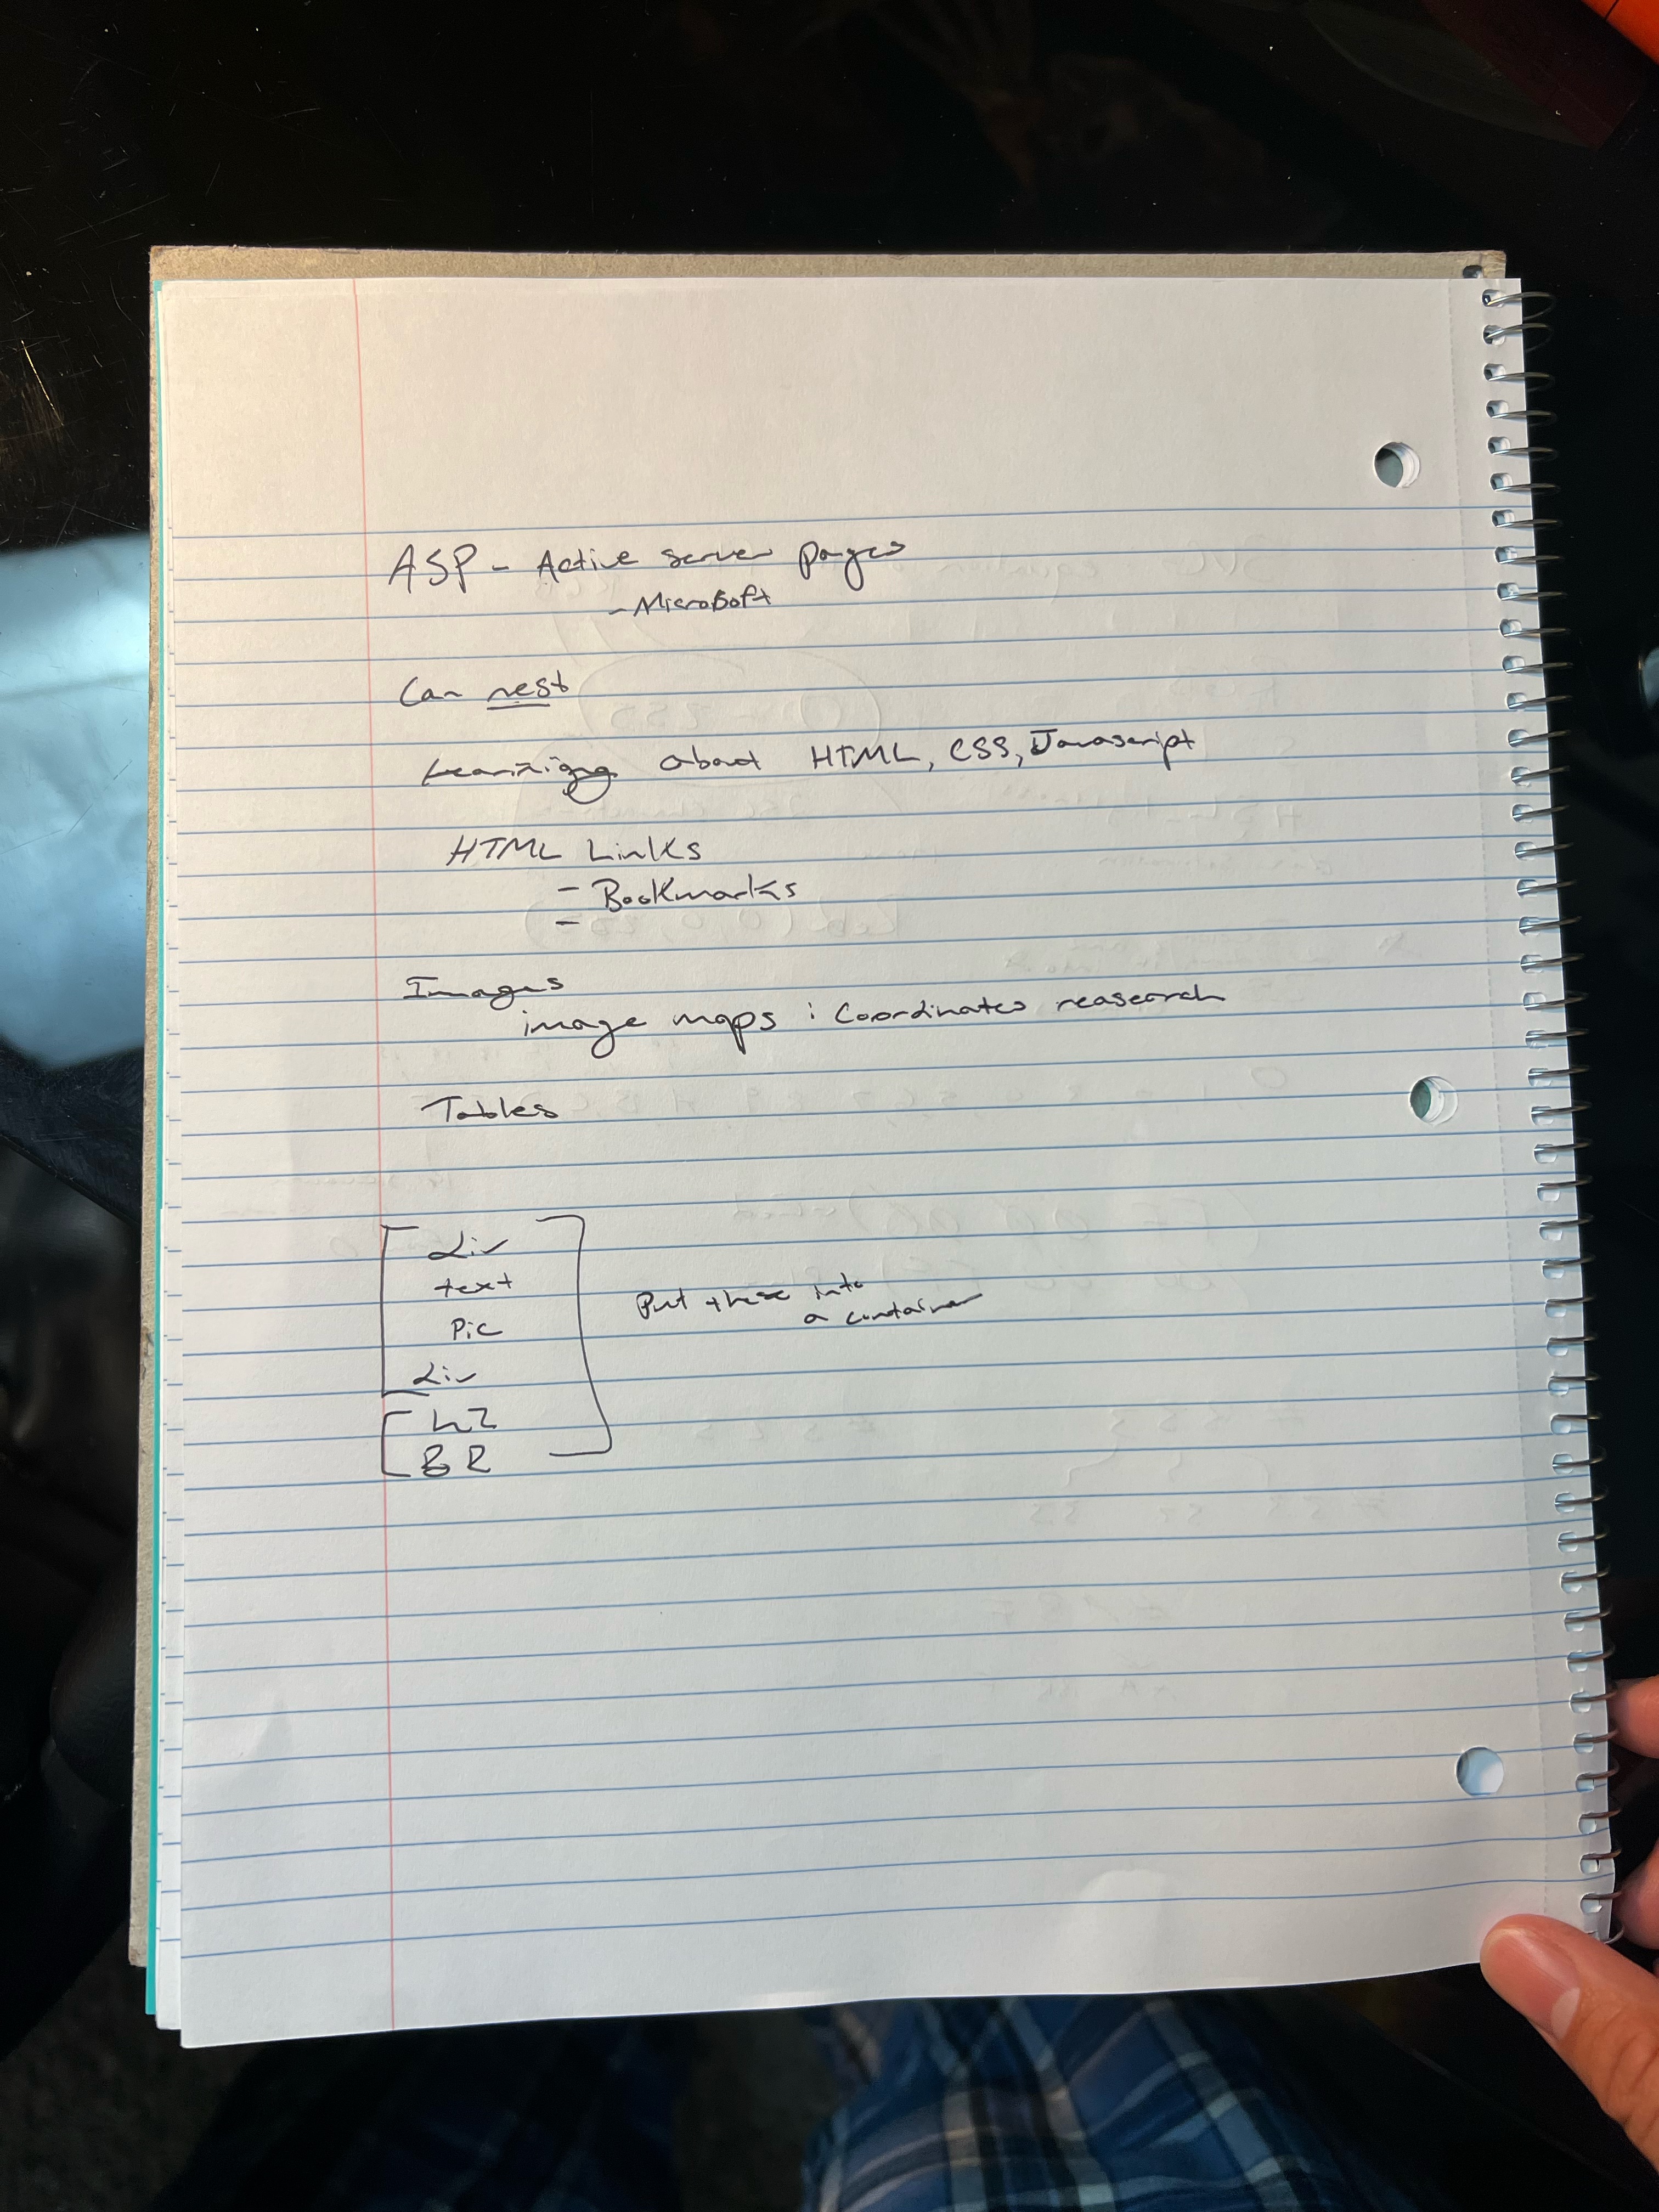 ASP - Active server pages
- Microsoft
Can nest
Learninigng about HTML, CSS, Javascript
HTML Links
- Bookmarks
-
Images
image maps : Coordinates reasearch
Tables
div
text
Pic
div
Put these into
a container
h2
BR